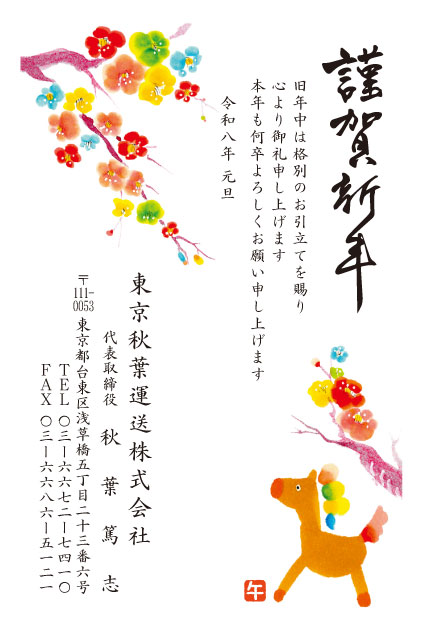 謹賀新年
旧年中は格別のお引立てを賜り
心より御礼申し上げます
本年も何卒よろしくお願い申し上げます
令和八年 元旦
東京秋葉運送株式会社
代表取締役 秋葉篤志
〒111-0053 東京都台東区浅草橋五丁目二十三番六号
TEL 〇三ー六六七二ー七四一〇
FAX 〇三ー六六八六ー五一二一
午